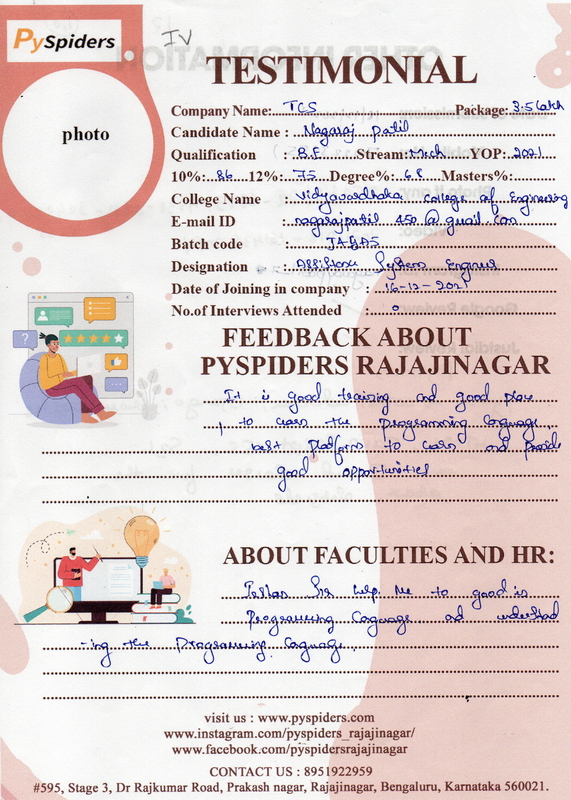 PySpiders
IV
TESTIMONIAL
photo
Company Name: TCS Package: 3.5 Lakh
Candidate Name : Nagaraj patil
Qualification : B.E Stream: Mech YOP: 2021
10%: 86 12%: 75 Degree%: 68 Masters%:
College Name : Vidyavardhaka college of Engineering
E-mail ID : nagarajpatil 450 @gmail.com
Batch code :
Designation : System Engineer
Date of Joining in company : 16-12-2021
No.of Interviews Attended : 0
FEEDBACK ABOUT
PYSPIDERS RAJAJINAGAR
It is good training and good place
to learn the programming language,
best platform to learn and provide
good opportunities
ABOUT FACULTIES AND HR:
Sir help me to good in
Programming language and understand
-ing the Programming language.
visit us : www.pyspiders.com
www.instagram.com/pyspiders_rajajinagar/
www.facebook.com/pyspidersrajajinagar
CONTACT US : 8951922959
#595, Stage 3, Dr Rajkumar Road, Prakash nagar, Rajajinagar, Bengaluru, Karnataka 560021.